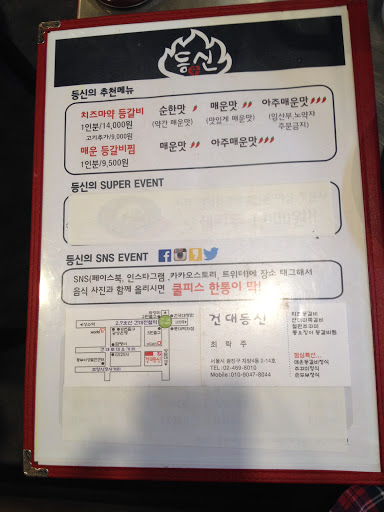 등신
등신의 추천메뉴
치즈마약 등갈비 순한맛 매운맛 아주매운맛
1인분/14,000원 (약간 매운맛) (맛있게 매운맛) (임산부,노약자
고기추가/9,000원 주문금지)
매운 등갈비찜 매운맛 아주매운맛
1인분/9,500원
등신의 SUPER EVENT
등신의 SNS EVENT
SNS(페이스북, 인스타그램, 카카오스토리, 트위터)에 장소 태그해서
음식 사진과 함께 올리면 쿨피스 한통이 딱!
건대등신
최학주
서울시 광진구 자양4동 2-14호
TEL : 02-469-8010
Mobile : 010-9047-8044
치즈등갈비
점심특선
매운등갈비정식
쭈꾸미정식
순두부정식